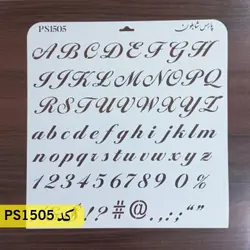 PS1505 پارس شابلون
A B C D E F G H
I J K L M N O P Q
R S T U V W X Y Z
a b c d e f g h i j k l m
n o p q r s t u v w x y z
1 2 3 4 5 6 7 8 9 0 %
! ? # @ . , : ; “ ”
کد PS1505